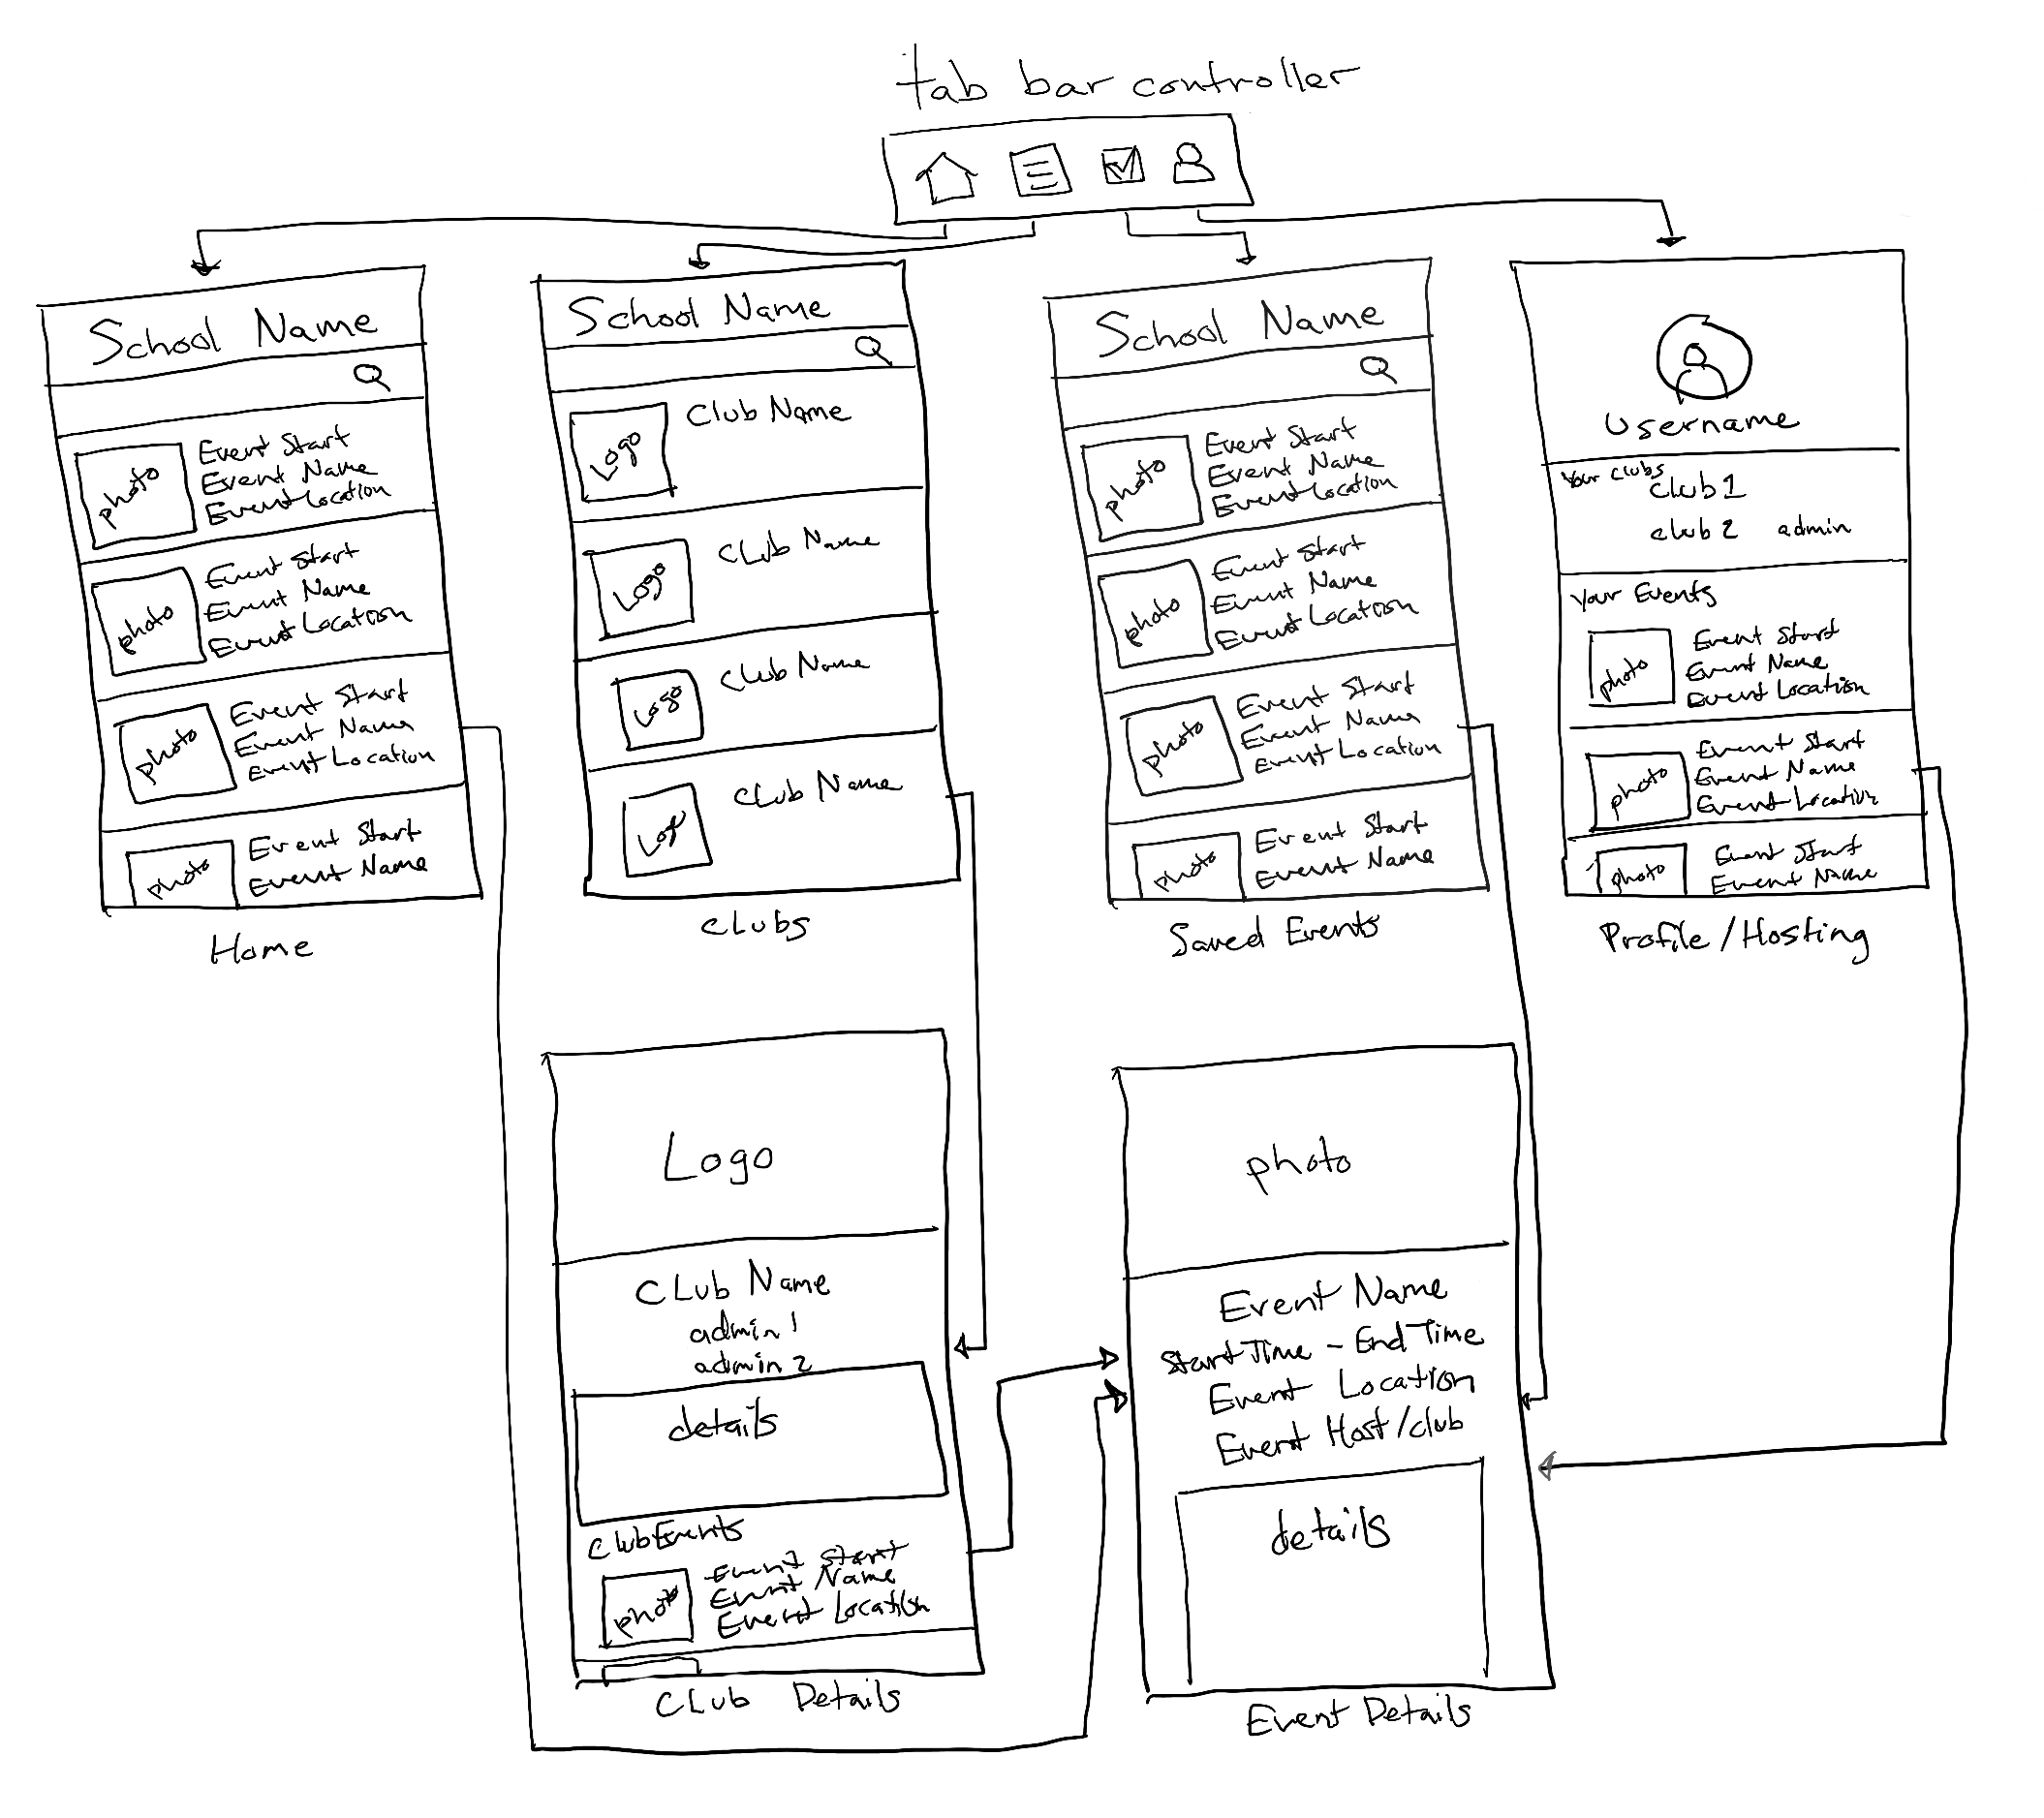 tab bar controller
School Name
photo
Event Start
Event Name
Event Location
photo
Event Start
Event Name
Event Location
photo
Event Start
Event Name
Event Location
photo
Event Start
Event Name
Home
School Name
Logo
Club Name
Logo
Club Name
Logo
Club Name
Logo
Club Name
Clubs
School Name
photo
Event Start
Event Name
Event Location
photo
Event Start
Event Name
Event Location
photo
Event Start
Event Name
Event Location
photo
Event Start
Event Name
Saved Events
Username
Your Clubs
Club 1
club 2 admin
Your Events
photo
Event Start
Event Name
Event Location
photo
Event Start
Event Name
Event Location
photo
Event Start
Event Name
Profile/Hosting
Logo
Club Name
admin 1
admin 2
details
Club Events
photo
Event Start
Event Name
Event Location
Club Details
photo
Event Name
Start Time - End Time
Event Location
Event Host/club
details
Event Details